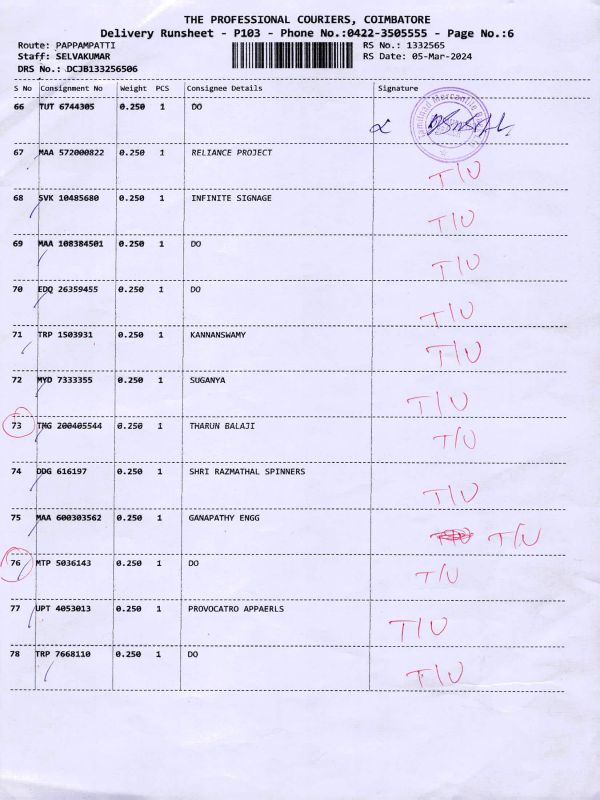 THE PROFESSIONAL COURIERS, COIMBATORE
Delivery Runsheet - P103 - Phone No.:0422-3505555 - Page No.:6
Route: PAPPAMPATTI RS No.: 1332565
Staff: SELVAKUMAR RS Date: 05-Mar-2024
DRS No.: DCJB133256506
S No Consignment No Weight PCS Consignee Details Signature
66 TUT 6744305 0.250 1 DO
Tamilnad Mercantile
67 MAA 572000822 0.250 1 RELIANCE PROJECT T/U
68 SVK 10485680 0.250 1 INFINITE SIGNAGE T/U
69 MAA 108384501 0.250 1 DO T/U
70 EDQ 26359455 0.250 1 DO T/U
71 TRP 1503931 0.250 1 KANNANSWAMY T/U
72 MYD 7333355 0.250 1 SUGANYA T/U
73 TMG 200405544 0.250 1 THARUN BALAJI T/U
74 DDG 616197 0.250 1 SHRI RAZMATHAL SPINNERS T/U
75 MAA 600303562 0.250 1 GANAPATHY ENGG T/U
76 MTP 5036143 0.250 1 DO T/U
77 UPT 4053013 0.250 1 PROVOCATRO APPAERLS T/U
78 TRP 7668110 0.250 1 DO T/U